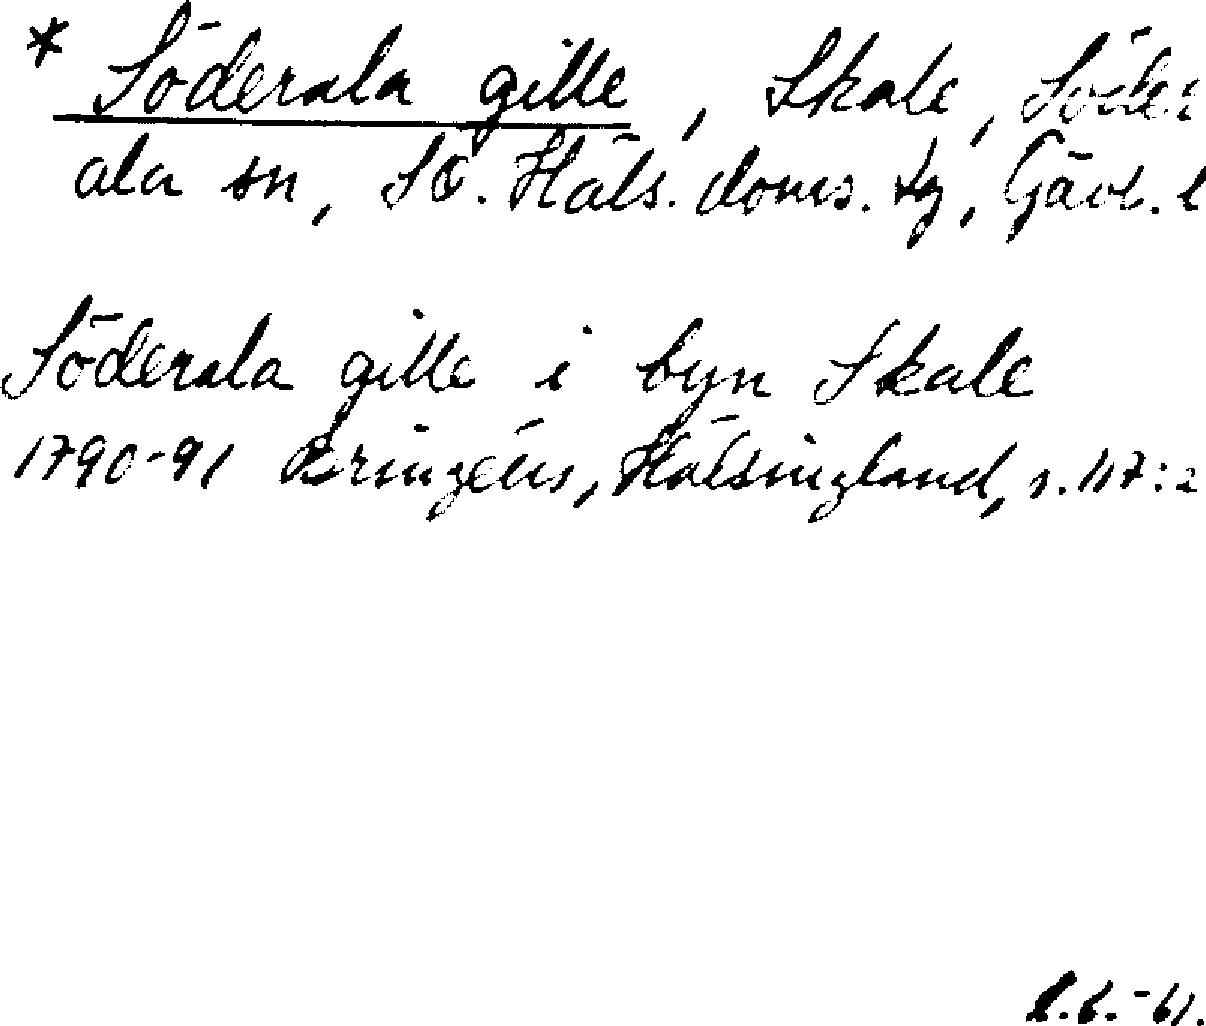 * Söderala gille, Skale, Söder
ala sn, SÖ. Häls. doms. tg, Gävl. l
Söderala gille i byn Skale
1790-91 Bringéus, Hälsingland, s. 117:2